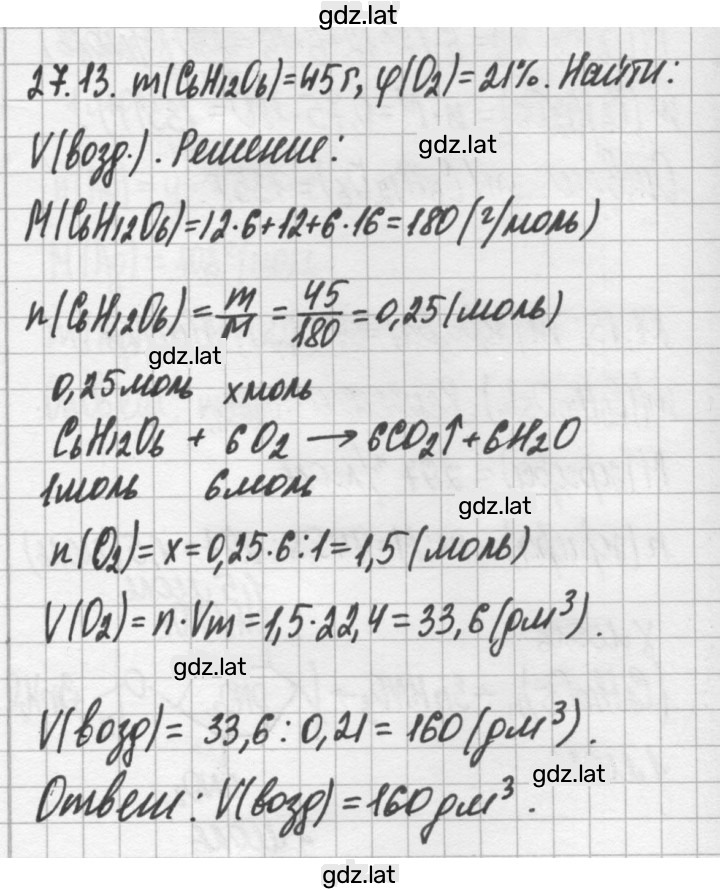 gdz.lat
27.13. m(C₆H₁₂O₆)=45г, φ(O₂)=21%. Найти:
gdz.lat
V(возд.). Решение:
M(C₆H₁₂O₆)=12·6+12+6·16=180(г/моль)
n(C₆H₁₂O₆) = m/M = 45/180 = 0,25(моль)
gdz.lat
0,25моль xмоль
C₆H₁₂O₆ + 6O₂ → 6CO₂↑+6H₂O
1моль 6моль
gdz.lat
n(O₂)=x=0,25·6:1=1,5(моль)
V(O₂)=n·Vm=1,5·22,4=33,6(дм³).
gdz.lat
V(возд)= 33,6:0,21=160(дм³).
gdz.lat
Ответ: V(возд)=160дм³.
gdz.lat